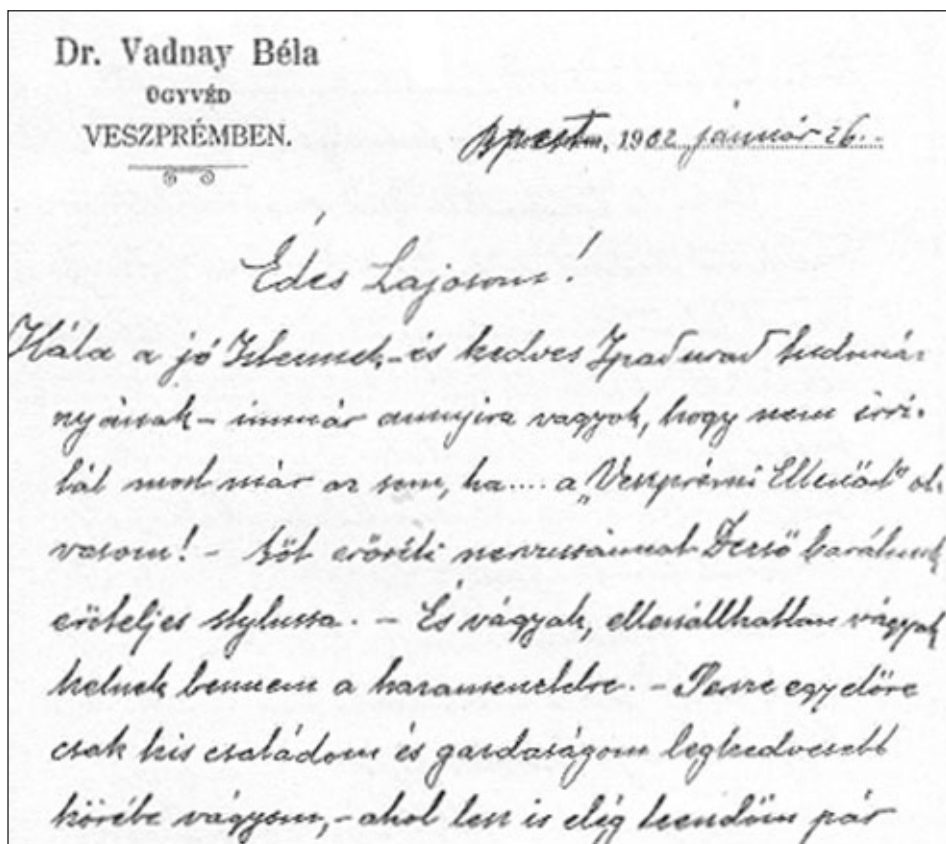 Dr. Vadnay Béla
ÜGYVÉD
VESZPRÉMBEN.
Bpesten, 1902 január 26.
Édes Lajosom!
Hála a jó Istennek - és kedves Ipad urad tudomá-
nyának - immár annyira vagyok, hogy nem irri-
tál most már az sem, ha.... a „Veszprémi Ellenőr" ol-
vasom! - Sőt erősíti nervussaimat Dezső barátunk
erőteljes stylussa. - És vágyak, ellenállhatlan vágyak
kelnek bennem a hazamenetelre. - Persze egyelőre
csak kis családom és gazdaságom legkedvesebb
körébe vágyom, - ahol lesz is elég teendőm pár